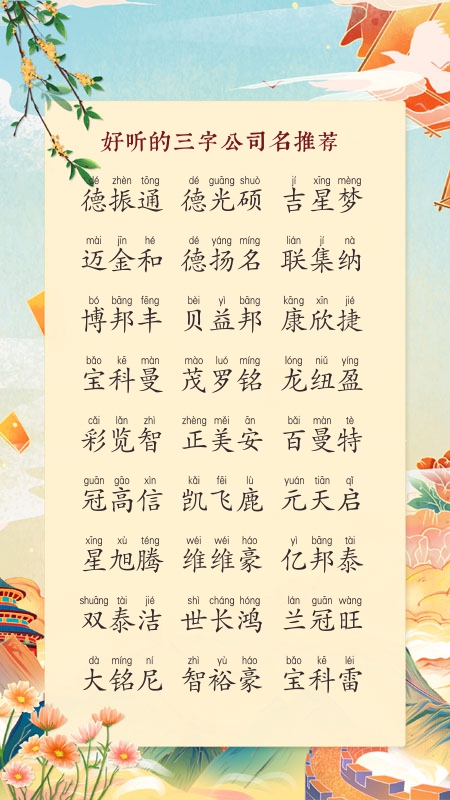 好听的三字公司名推荐
dé zhèn tōng dé guāng shuò jí xīng mèng
德振通 德光硕 吉星梦
mài jīn hé dé yáng míng lián jí nà
迈金和 德扬名 联集纳
bó bāng fēng bèi yì bāng kāng xīn jié
博邦丰 贝益邦 康欣捷
bǎo kē màn mào luó míng lóng niǔ yíng
宝科曼 茂罗铭 龙纽盈
cǎi lǎn zhì zhèng měi ān bǎi màn tè
彩览智 正美安 百曼特
guān gāo xìn kǎi fēi lù yuán tiān qǐ
冠高信 凯飞鹿 元天启
xīng xù téng wéi wéi háo yì bāng tài
星旭腾 维维豪 亿邦泰
shuāng tài jié shì cháng hóng lán guān wàng
双泰洁 世长鸿 兰冠旺
dà míng ní zhì yù háo bǎo kē léi
大铭尼 智裕豪 宝科雷